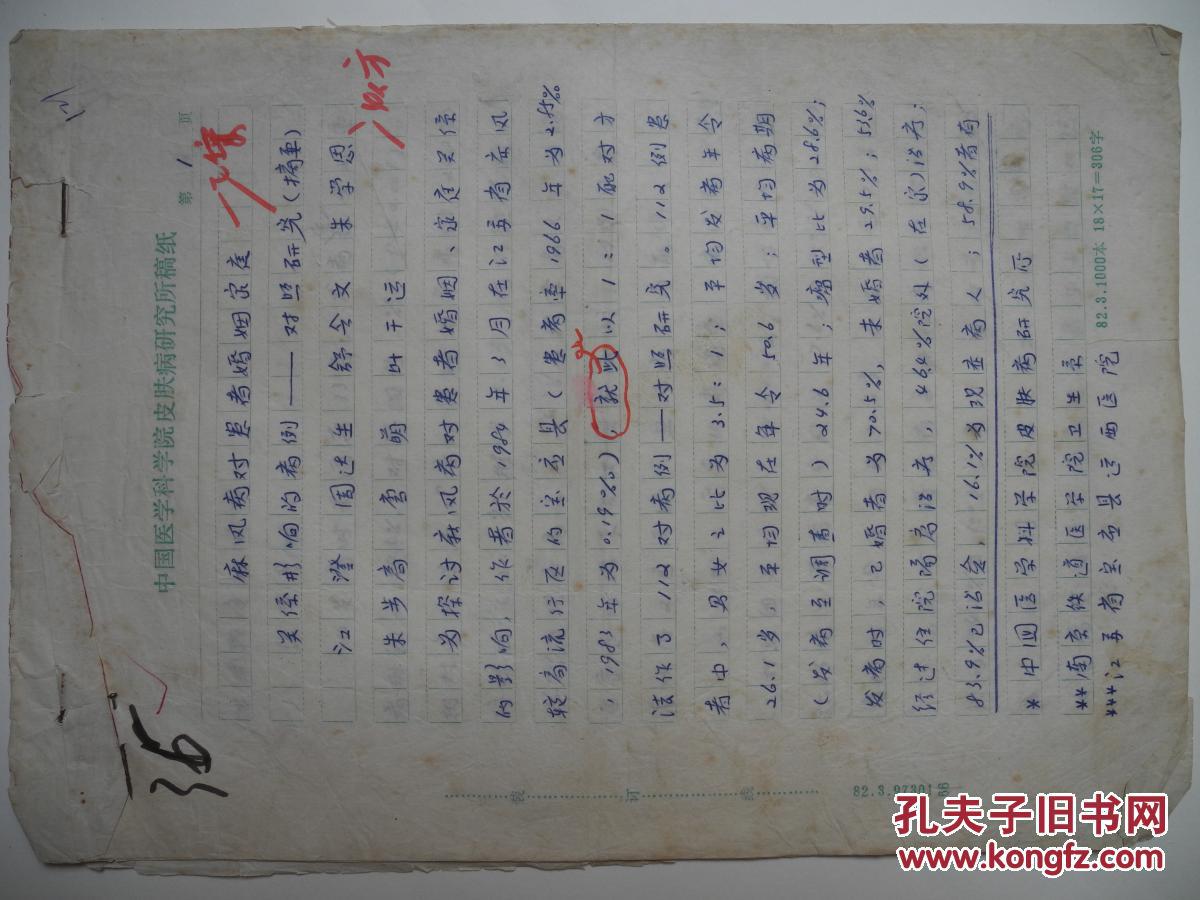 中国医学科学院皮肤病研究所稿纸
第 1 页
35
麻风病对患者婚姻家庭
关係影响的病例——对照研究(摘要)
江澄 周达生 舒令文 朱学恩
朱步高 雪萌 千运
为探讨麻风病对患者婚姻、家庭关係
的影响,作者於1984年3月在江苏省麻风
较高流行区的宝应县(患病率1966年为2.85‰
,1983年为0.19‰),就此以1:1配对方
法作了112对病例——对照研究。112例患
者中,男女之比为3.5:1;平均发病年令
26.1岁,平均现在年令50.6岁;平均病期
(发病至调查时)24.6年;瘤型比为28.6%;
发病时,已婚者为70.5%,未婚者29.5%;53.6%
经过住院隔离治疗,46.4%院外(在家)治疗;
83.9%已治愈,16.1%为现症病人;58.9%者有
* 中国医学科学院皮肤病研究所
** 南京铁道医学院卫生系
*** 江苏省宝应县运西医院
装 订 线
82.3.1000本 18×17=306字
孔夫子旧书网
www.kongfz.com